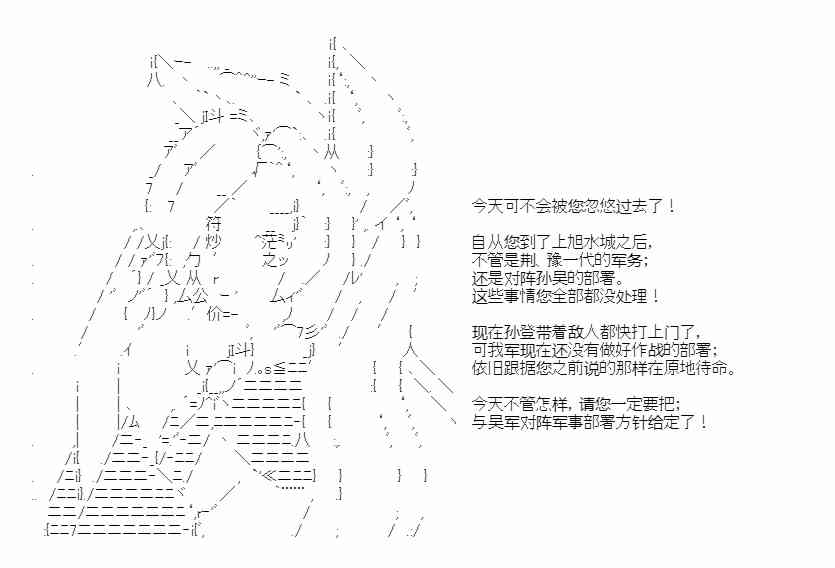 今天可不会被您忽悠过去了！
自从您到了上旭水城之后，
不管是荆、豫一代的军务；
还是对阵孙吴的部署。
这些事情您全部都没处理！
现在孙登带着敌人都快打上门了，
可我军现在还没有做好作战的部署；
依旧跟据您之前说的那样在原地待命。
今天不管怎样，请您一定要把；
与吴军对阵军事部署方针给定了！